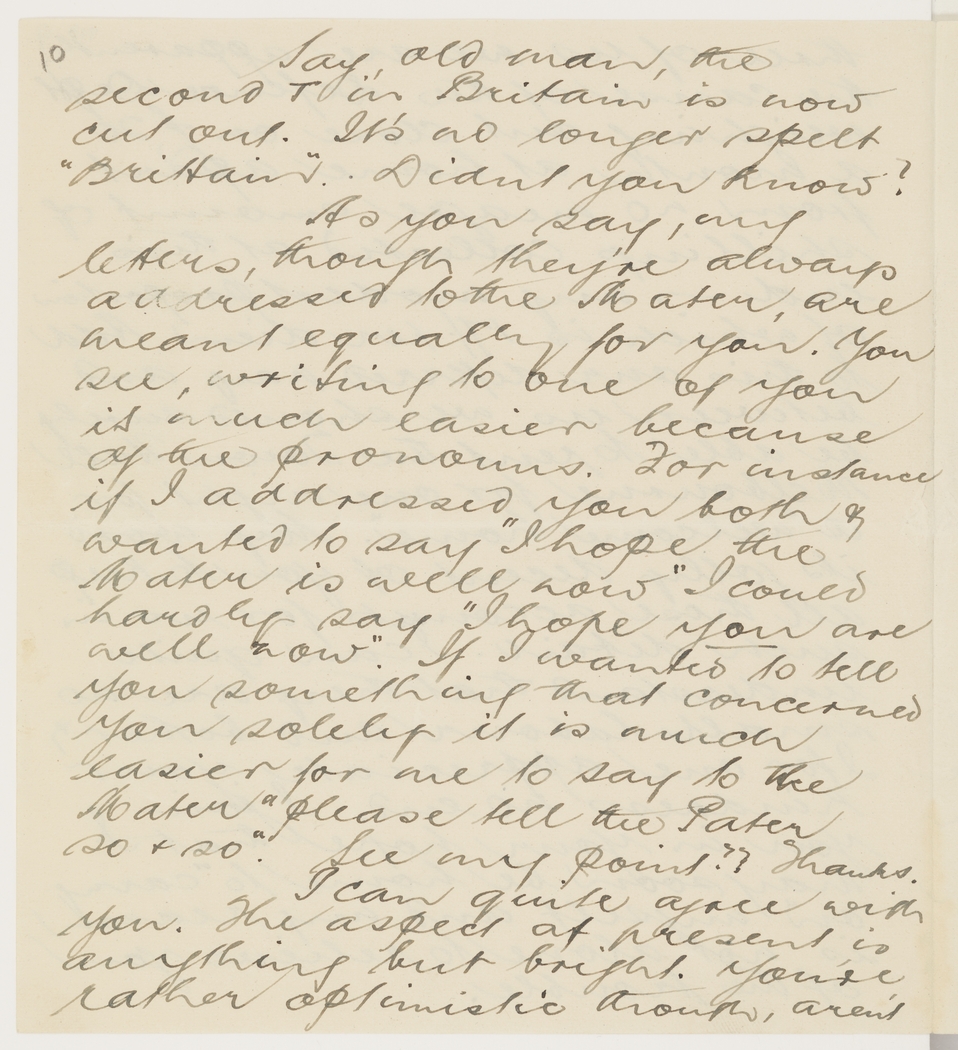 10
Say, old man, the
second T in Britain is now
cut out. It's no longer spelt
"Brittain". Didnt you know?
As you say, my
letters, though they're always
addressed to the Mater, are
meant equally for you. You
see, writing to one of you
is much easier because
of the pronouns. For instance
if I addressed you both &
wanted to say "I hope the
Mater is well now" I could
hardly say "I hope you are
well now". If I wanted to tell
you something that concerned
you solely it is much
easier for me to say to the
Mater "please tell the Pater
so + so". See my point?? Thanks.
I can quite agree with
you. The aspect at present is
anything but bright. You're
rather optimistic though, aren't